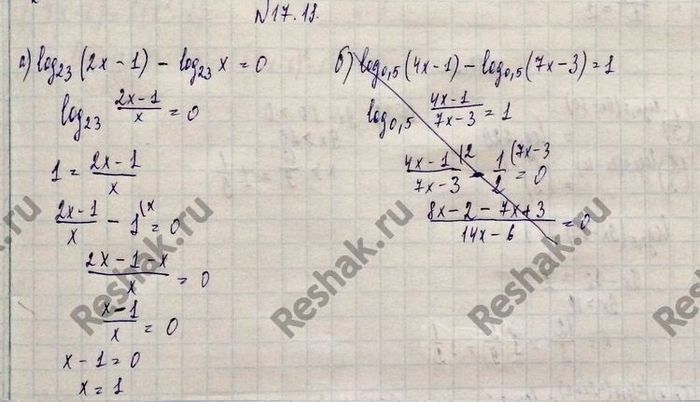 №17.19.
а) log₂₃(2x-1) - log₂₃x = 0
log₂₃ (2x-1)/x = 0
1 = (2x-1)/x
(2x-1)/x - 1^(x = 0
(2x-1-x)/x = 0
(x-1)/x = 0
x-1=0
x=1
б) log₀,₅(4x-1) - log₀,₅(7x-3) = 1
log₀,₅ (4x-1)/(7x-3) = 1
(4x-1)/(7x-3)^(2 - 1/2^(7x-3 = 0
(8x-2-7x+3)/(14x-6) = 0
Reshak.ru
Reshak.ru
Reshak.ru
Reshak.ru